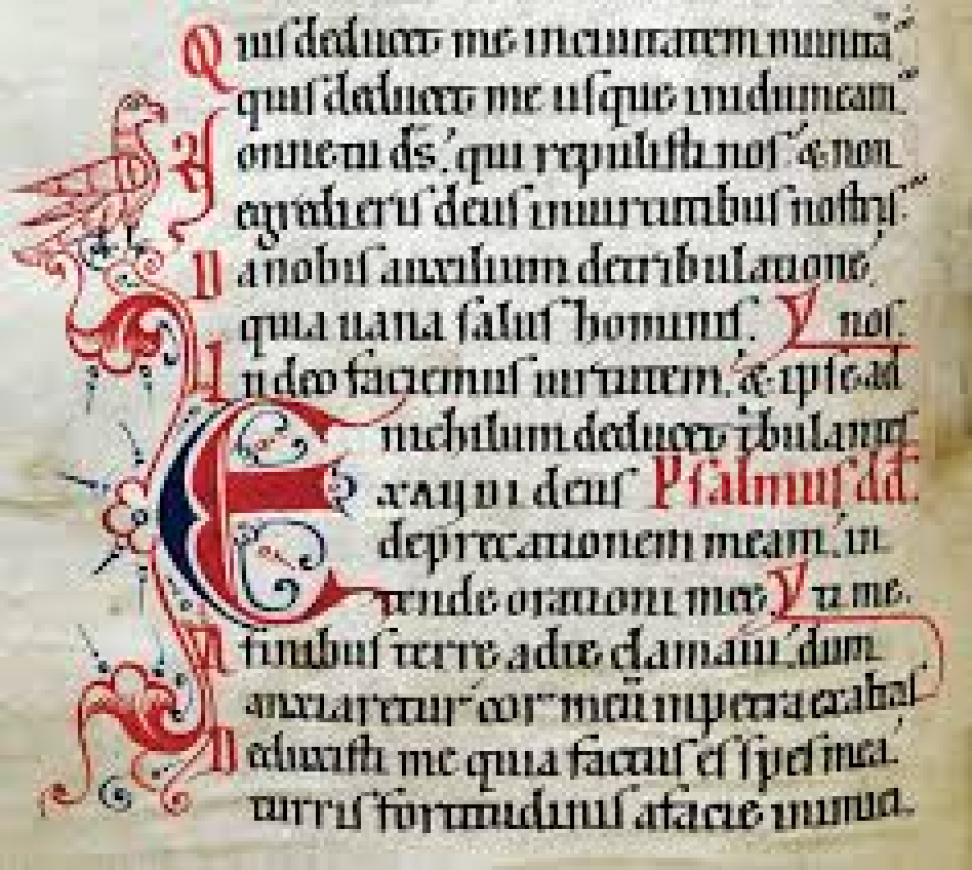 Quis deducet me in ciuitatem munitā
quis deducet me usque in idumeam.
Nonne tu ds. qui repulisti nos & non
egredieris deus in uirtutibus nostris.
Da nobis auxilium de tribulatione
quia uana salus hominis. nos.
In deo faciemus uirtutem. & ipse ad
nichilum deducet
EXAUDI deus Psalmus dd.
deprecationem meam. in
tende orationi mee ti me.
A finibus terre ad te clamaui. dum
anxiaretur cor meū in petra exaltas
Deduxisti me quia factus es spes mea.
turris fortitudinis a facie inimici.